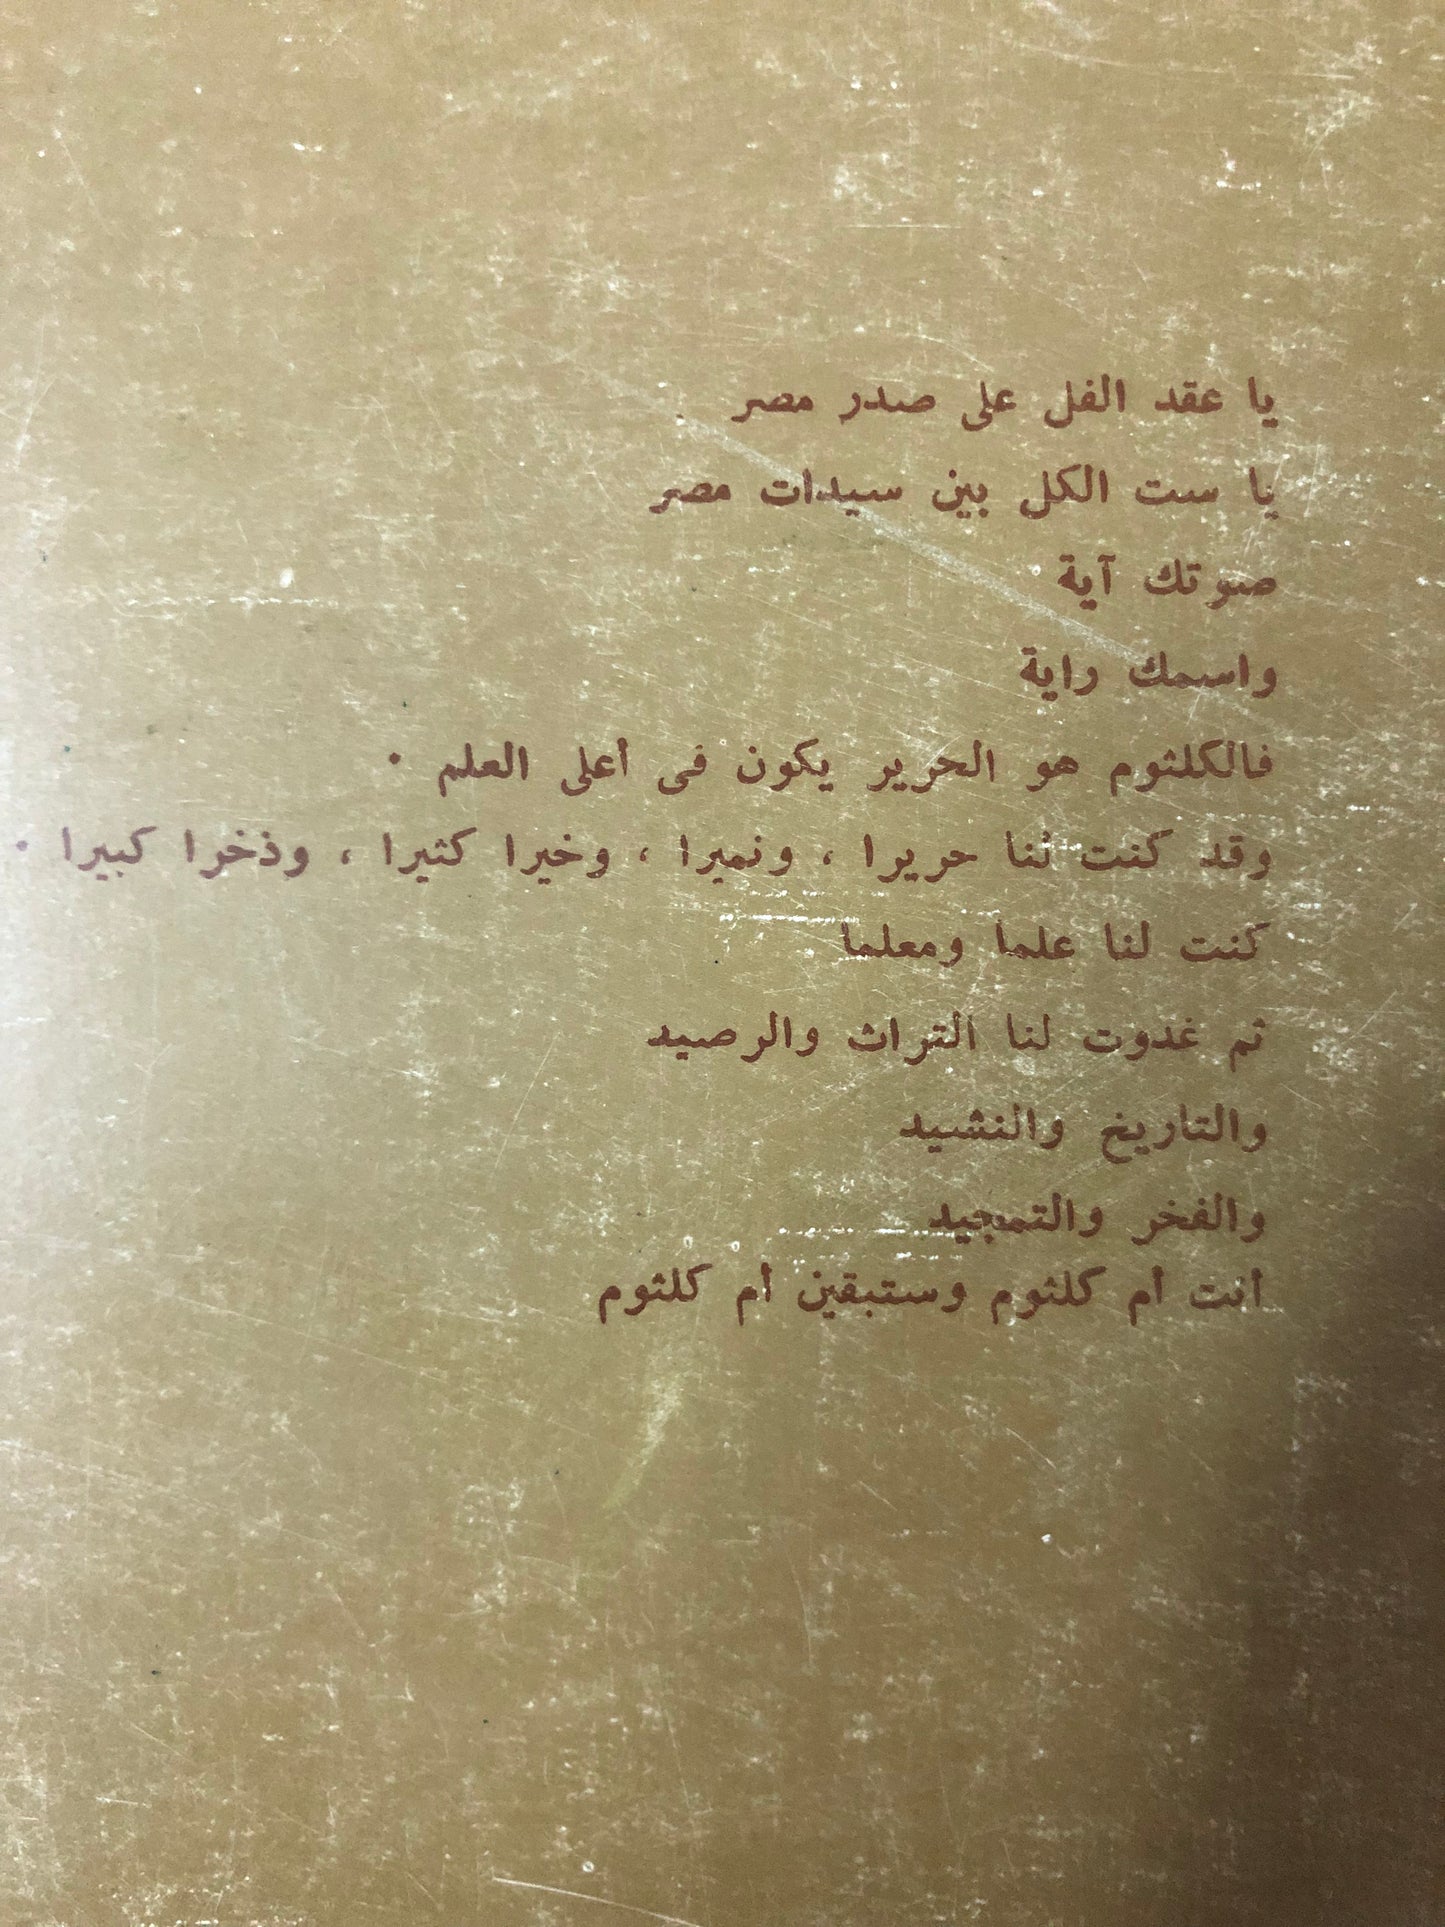 يا عقد الفل على صدر مصر
يا ست الكل بين سيدات مصر
صوتك آية
واسمك راية
فالكلثوم هو الحرير يكون فى أعلى العلم .
وقد كنت لنا حريرا ، ونميرا ، وخيرا كثيرا ، وذخرا كبيرا .
كنت لنا علما ومعلما
ثم غدوت لنا التراث والرصيد
والتاريخ والنشيد
والفخر والتمجيد
أنت أم كلثوم وستبقين أم كلثوم